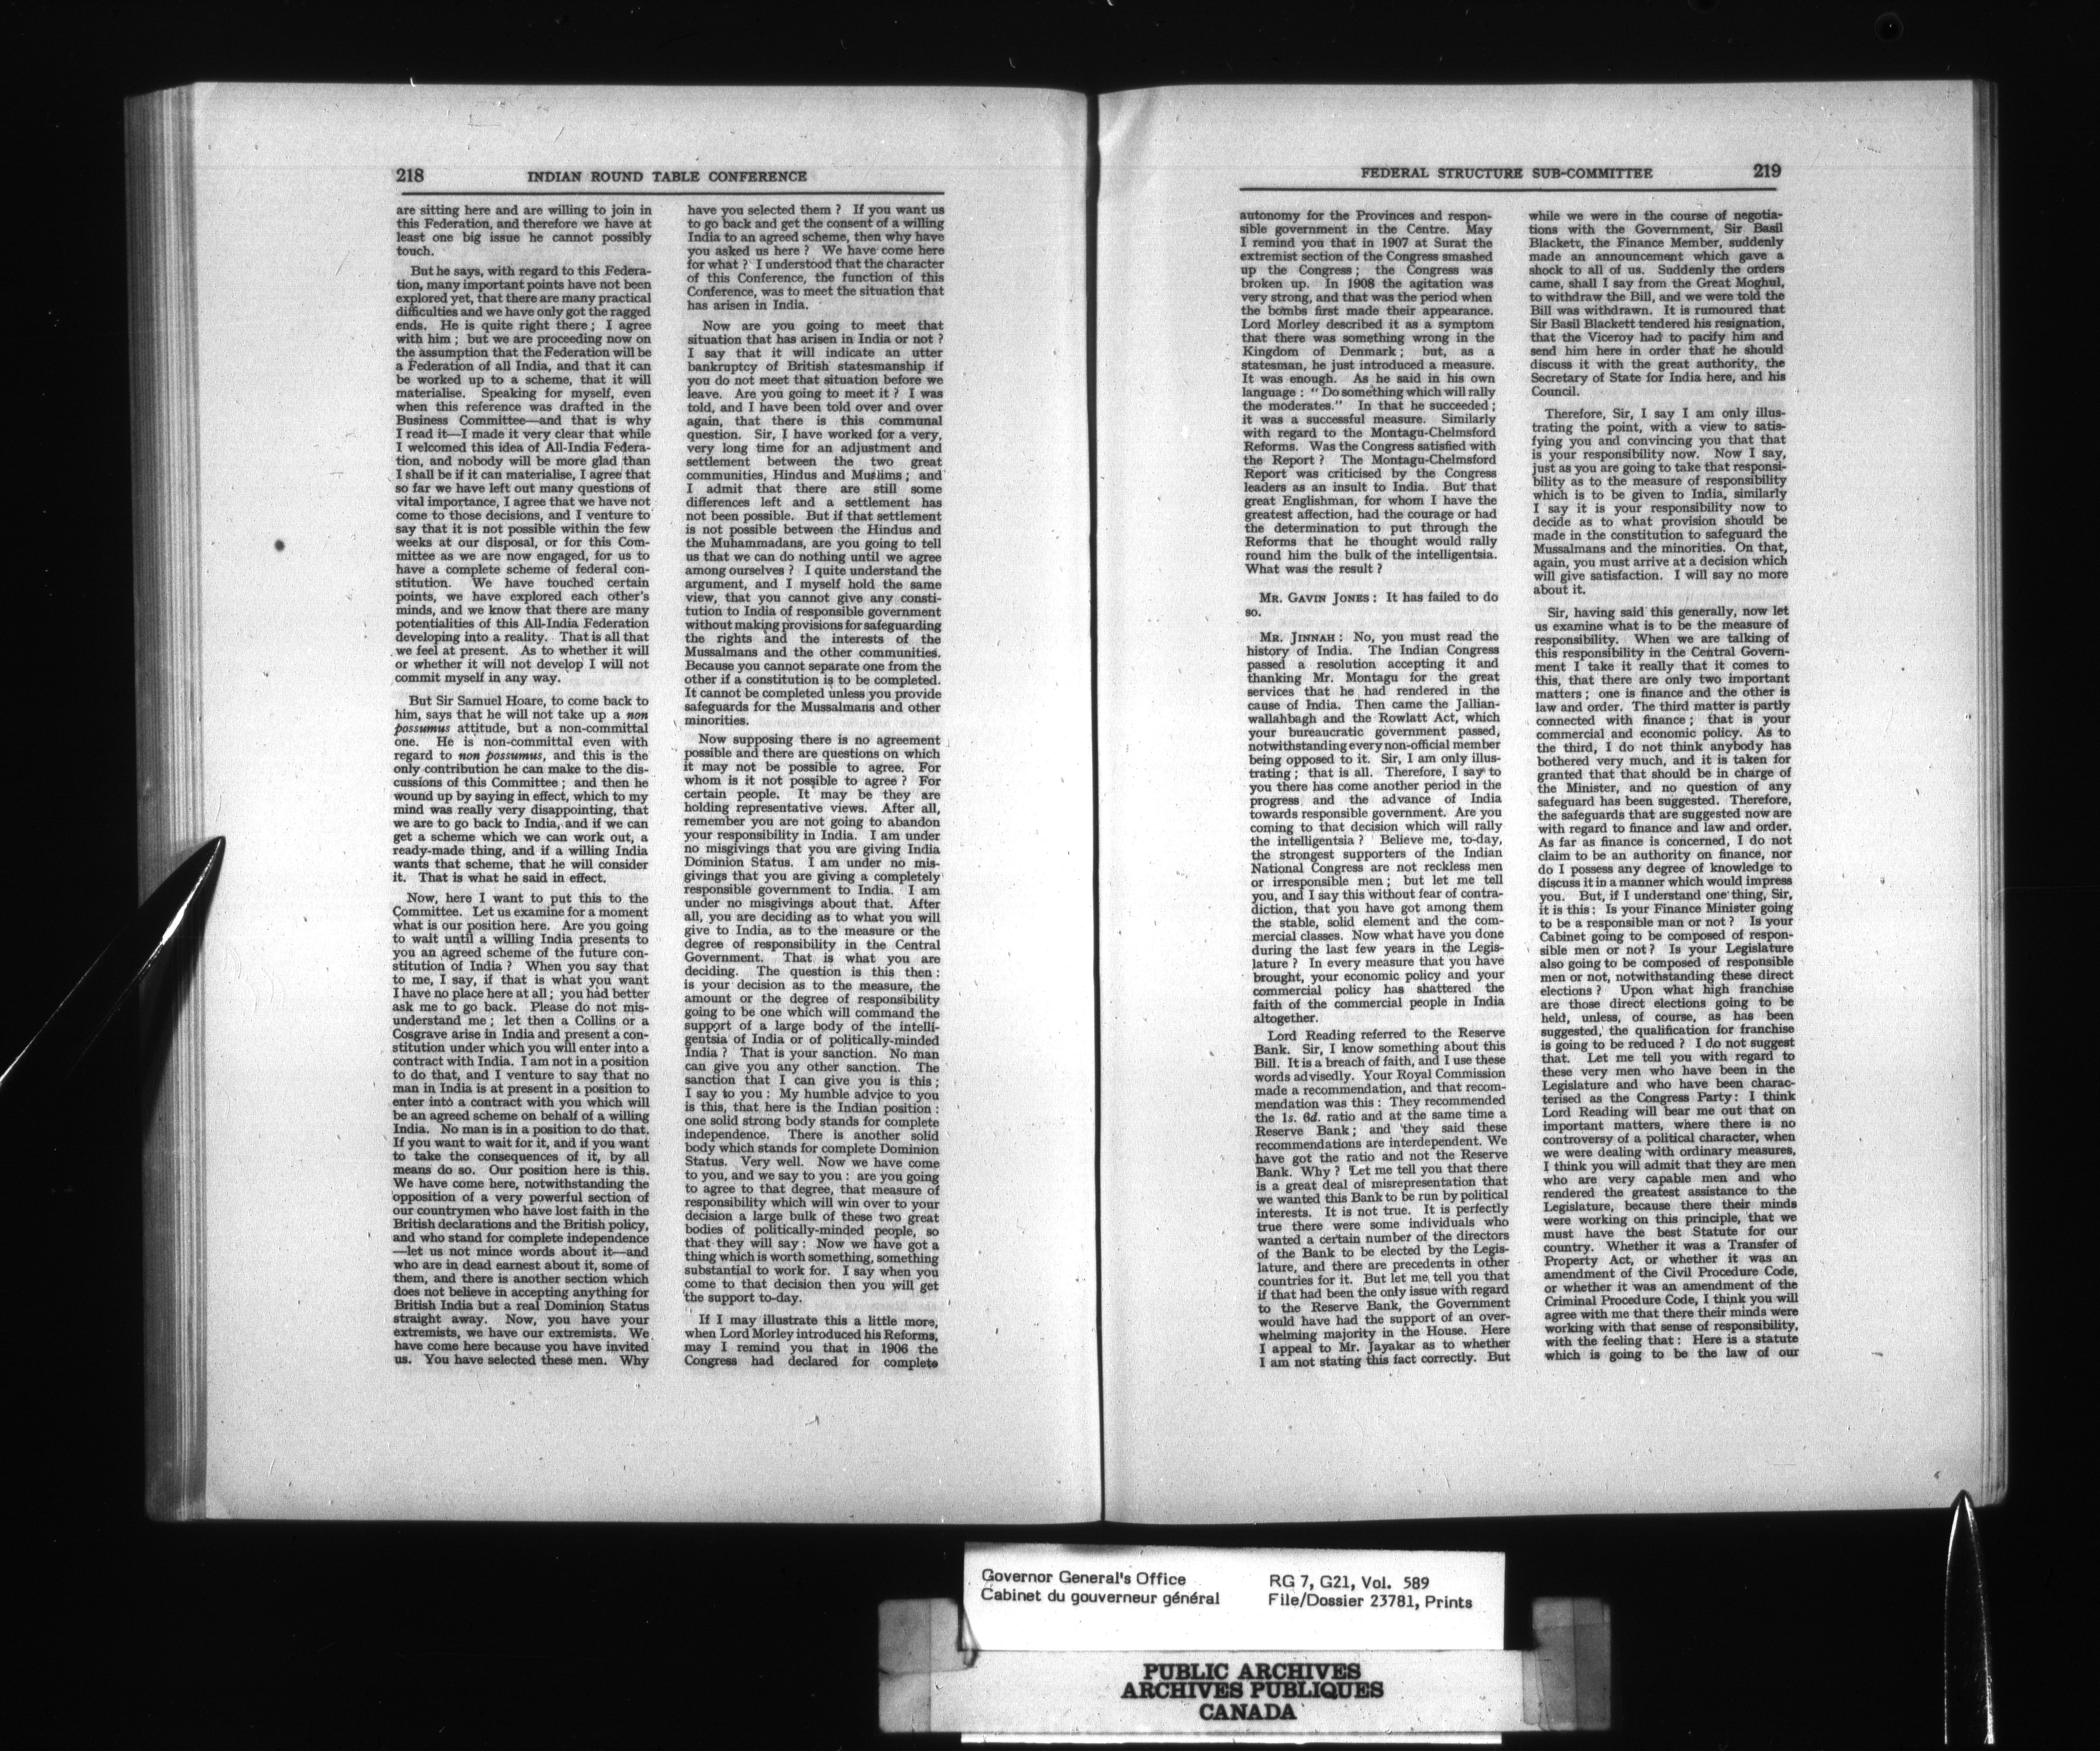 218
INDIAN ROUND TABLE CONFERENCE
are sitting here and are willing to join in
this Federation, and therefore we have at
least one big issue he cannot possibly
touch.
But he says, with regard to this Federa-
tion, many important points have not been
explored yet, that there are many practical
difficulties and we have only got the ragged
ends. He is quite right there; I agree
with him; but we are proceeding now on
the assumption that the Federation will be
a Federation of all India, and that it can
be worked up to a scheme, that it will
materialise. Speaking for myself, even
when this reference was drafted in the
Business Committee—and that is why
I read it—I made it very clear that while
I welcomed this idea of All-India Federa-
tion, and nobody will be more glad than
I shall be if it can materialise, I agree that
so far we have left out many questions of
vital importance, I agree that we have not
come to those decisions, and I venture to
say that it is not possible within the few
weeks at our disposal, or for this Com-
mittee as we are now engaged, for us to
have a complete scheme of federal con-
stitution. We have touched certain
points, we have explored each other's
minds, and we know that there are many
potentialities of this All-India Federation
developing into a reality. That is all that
we feel at present. As to whether it will
or whether it will not develop I will not
commit myself in any way.
But Sir Samuel Hoare, to come back to
him, says that he will not take up a non
possumus attitude, but a non-committal
one. He is non-committal even with
regard to non possumus, and this is the
only contribution he can make to the dis-
cussions of this Committee; and then he
wound up by saying in effect, which to my
mind was really very disappointing, that
we are to go back to India, and if we can
get a scheme which we can work out, a
ready-made thing, and if a willing India
wants that scheme, that he will consider
it. That is what he said in effect.
Now, here I want to put this to the
Committee. Let us examine for a moment
what is our position here. Are you going
to wait until a willing India presents to
you an agreed scheme of the future con-
stitution of India? When you say that
to me, I say, if that is what you want
I have no place here at all; you had better
ask me to go back. Please do not mis-
understand me; let then a Collins or a
Cosgrave arise in India and present a con-
stitution under which you will enter into a
contract with India. I am not in a position
to do that, and I venture to say that no
man in India is at present in a position to
enter into a contract with you which will
be an agreed scheme on behalf of a willing
India. No man is in a position to do that.
If you want to wait for it, and if you want
to take the consequences of it, by all
means do so. Our position here is this.
We have come here, notwithstanding the
opposition of a very powerful section of
our countrymen who have lost faith in the
British declarations and the British policy,
and who stand for complete independence
—let us not mince words about it—and
who are in dead earnest about it, some of
them, and there is another section which
does not believe in accepting anything for
British India but a real Dominion Status
straight away. Now, you have your
extremists, we have our extremists. We
have come here because you have invited
us. You have selected these men. Why
have you selected them? If you want us
to go back and get the consent of a willing
India to an agreed scheme, then why have
you asked us here? We have come here
for what? I understood that the character
of this Conference, the function of this
Conference, was to meet the situation that
has arisen in India.
Now are you going to meet that
situation that has arisen in India or not?
I say that it will indicate an utter
bankruptcy of British statesmanship if
you do not meet that situation before we
leave. Are you going to meet it? I was
told, and I have been told over and over
again, that there is this communal
question. Sir, I have worked for a very,
very long time for an adjustment and
settlement between the two great
communities, Hindus and Muslims; and
I admit that there are still some
differences left and a settlement has
not been possible. But if that settlement
is not possible between the Hindus and
the Muhammadans, are you going to tell
us that we can do nothing until we agree
among ourselves? I quite understand the
argument, and I myself hold the same
view, that you cannot give any consti-
tution to India of responsible government
without making provisions for safeguarding
the rights and the interests of the
Mussalmans and the other communities.
Because you cannot separate one from the
other if a constitution is to be completed.
It cannot be completed unless you provide
safeguards for the Mussalmans and other
minorities.
Now supposing there is no agreement
possible and there are questions on which
it may not be possible to agree. For
whom is it not possible to agree? For
certain people. It may be they are
holding representative views. After all,
remember you are not going to abandon
your responsibility in India. I am under
no misgivings that you are giving India
Dominion Status. I am under no mis-
givings that you are giving a completely
responsible government to India. I am
under no misgivings about that. After
all, you are deciding as to what you will
give to India, as to the measure or the
degree of responsibility in the Central
Government. That is what you are
deciding. The question is this then:
is your decision as to the measure, the
amount or the degree of responsibility
going to be one which will command the
support of a large body of the intelli-
gentsia of India or of politically-minded
India? That is your sanction. No man
can give you any other sanction. The
sanction that I can give you is this;
I say to you: My humble advice to you
is this, that here is the Indian position:
one solid strong body stands for complete
independence. There is another solid
body which stands for complete Dominion
Status. Very well. Now we have come
to you, and we say to you: are you going
to agree to that degree, that measure of
responsibility which will win over to your
decision a large bulk of these two great
bodies of politically-minded people, so
that they will say: Now we have got a
thing which is worth something, something
substantial to work for. I say when you
come to that decision then you will get
the support to-day.
If I may illustrate this a little more,
when Lord Morley introduced his Reforms,
may I remind you that in 1906 the
Congress had declared for complete
FEDERAL STRUCTURE SUB-COMMITTEE
219
autonomy for the Provinces and respon-
sible government in the Centre. May
I remind you that in 1907 at Surat the
extremist section of the Congress smashed
up the Congress; the Congress was
broken up. In 1908 the agitation was
very strong, and that was the period when
the bombs first made their appearance.
Lord Morley described it as a symptom
that there was something wrong in the
Kingdom of Denmark; but, as a
statesman, he just introduced a measure.
It was enough. As he said in his own
language: "Do something which will rally
the moderates." In that he succeeded;
it was a successful measure. Similarly
with regard to the Montagu-Chelmsford
Reforms. Was the Congress satisfied with
the Report? The Montagu-Chelmsford
Report was criticised by the Congress
leaders as an insult to India. But that
great Englishman, for whom I have the
greatest affection, had the courage or had
the determination to put through the
Reforms that he thought would rally
round him the bulk of the intelligentsia.
What was the result?
MR. GAVIN JONES: It has failed to do
so.
MR. JINNAH: No, you must read the
history of India. The Indian Congress
passed a resolution accepting it and
thanking Mr. Montagu for the great
services that he had rendered in the
cause of India. Then came the Jallian-
wallahbagh and the Rowlatt Act, which
your bureaucratic government passed,
notwithstanding every non-official member
being opposed to it. Sir, I am only illus-
trating; that is all. Therefore, I say to
you there has come another period in the
progress and the advance of India
towards responsible government. Are you
coming to that decision which will rally
the intelligentsia? Believe me, to-day,
the strongest supporters of the Indian
National Congress are not reckless men
or irresponsible men; but let me tell
you, and I say this without fear of contra-
diction, that you have got among them
the stable, solid element and the com-
mercial classes. Now what have you done
during the last few years in the Legis-
lature? In every measure that you have
brought, your economic policy and your
commercial policy has shattered the
faith of the commercial people in India
altogether.
Lord Reading referred to the Reserve
Bank. Sir, I know something about this
Bill. It is a breach of faith, and I use these
words advisedly. Your Royal Commission
made a recommendation, and that recom-
mendation was this: They recommended
the 1s. 6d. ratio and at the same time a
Reserve Bank; and they said these
recommendations are interdependent. We
have got the ratio and not the Reserve
Bank. Why? Let me tell you that there
is a great deal of misrepresentation that
we wanted this Bank to be run by political
interests. It is not true. It is perfectly
true there were some individuals who
wanted a certain number of the directors
of the Bank to be elected by the Legis-
lature, and there are precedents in other
countries for it. But let me tell you that
if that had been the only issue with regard
to the Reserve Bank, the Government
would have had the support of an over-
whelming majority in the House. Here
I appeal to Mr. Jayakar as to whether
I am not stating this fact correctly. But
while we were in the course of negotia-
tions with the Government, Sir Basil
Blackett, the Finance Member, suddenly
made an announcement which gave a
shock to all of us. Suddenly the orders
came, shall I say from the Great Moghul,
to withdraw the Bill, and we were told the
Bill was withdrawn. It is rumoured that
Sir Basil Blackett tendered his resignation,
that the Viceroy had to pacify him and
send him here in order that he should
discuss it with the great authority, the
Secretary of State for India here, and his
Council.
Therefore, Sir, I say I am only illus-
trating the point, with a view to satis-
fying you and convincing you that that
is your responsibility now. Now I say,
just as you are going to take that responsi-
bility as to the measure of responsibility
which is to be given to India, similarly
I say it is your responsibility now to
decide as to what provision should be
made in the constitution to safeguard the
Mussalmans and the minorities. On that,
again, you must arrive at a decision which
will give satisfaction. I will say no more
about it.
Sir, having said this generally, now let
us examine what is to be the measure of
responsibility. When we are talking of
this responsibility in the Central Govern-
ment I take it really that it comes to
this, that there are only two important
matters; one is finance and the other is
law and order. The third matter is partly
connected with finance; that is your
commercial and economic policy. As to
the third, I do not think anybody has
bothered very much, and it is taken for
granted that that should be in charge of
the Minister, and no question of any
safeguard has been suggested. Therefore,
the safeguards that are suggested now are
with regard to finance and law and order.
As far as finance is concerned, I do not
claim to be an authority on finance, nor
do I possess any degree of knowledge to
discuss it in a manner which would impress
you. But, if I understand one thing, Sir,
it is this: Is your Finance Minister going
to be a responsible man or not? Is your
Cabinet going to be composed of respon-
sible men or not? Is your Legislature
also going to be composed of responsible
men or not, notwithstanding these direct
elections? Upon what high franchise
are those direct elections going to be
held, unless, of course, as has been
suggested, the qualification for franchise
is going to be reduced? I do not suggest
that. Let me tell you with regard to
these very men who have been in the
Legislature and who have been charac-
terised as the Congress Party: I think
Lord Reading will bear me out that on
important matters, where there is no
controversy of a political character, when
we were dealing with ordinary measures,
I think you will admit that they are men
who are very capable men and who
rendered the greatest assistance to the
Legislature, because there their minds
were working on this principle, that we
must have the best Statute for our
country. Whether it was a Transfer of
Property Act, or whether it was an
amendment of the Civil Procedure Code,
or whether it was an amendment of the
Criminal Procedure Code, I think you will
agree with me that there their minds were
working with that sense of responsibility,
with the feeling that: Here is a statute
which is going to be the law of our
Governor General's Office
Cabinet du gouverneur général
RG 7, G21, Vol. 589
File/Dossier 23781, Prints
PUBLIC ARCHIVES
ARCHIVES PUBLIQUES
CANADA